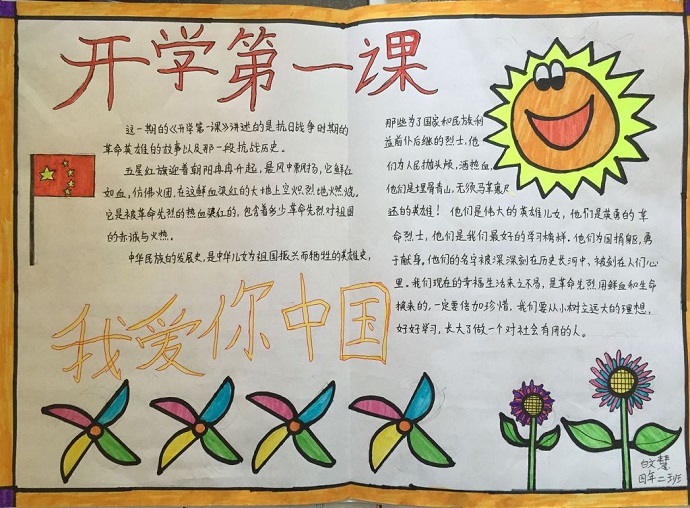 开学第一课
这一期的《开学第一课》讲述的是抗日战争时期的
革命英雄的故事以及那一段抗战历史。
五星红旗迎着朝阳冉冉升起，最风中飘扬，它鲜红
如血，仿佛火团，在这鲜血染红的大地上空炽烈地火燃烧。
它是被革命先烈的热血染红的，包含着多少革命先烈对祖国
的赤诚与火热。
中华民族的发展史，是中华儿女为祖国振兴而牺牲的英雄史，
那些为了国家和民族利
益前仆后继的烈士，他
们为人民抛头颅，洒热血，
他们是埋骨青山，无须马革裹尸
还的英雄！他们是伟大的英雄儿女，他们是英勇的革
命烈士，他们是我们最好的学习榜样。他们为国捐躯，勇
于献身。他们的名字被深深刻在历史长河中、被刻在人们心
里。我们现在的幸福生活来之不易，是革命先烈用鲜血和生命
换来的，一定要倍加珍惜。我们要从小树立远大的理想，
好好学习，长大了做一个对社会有用的人。
我爱你中国
白文慧
四年二班